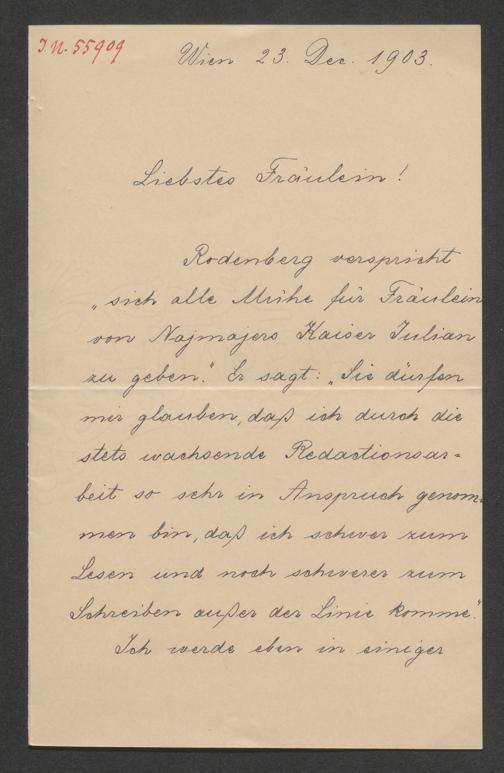 I.N. 55909
Wien 23. Dec. 1903.
Liebstes Fräulein!
Rodenberg verspricht
„sich alle Mühe für Fräulein
von Najmajers Kaiser Julian
zu geben." Er sagt: „Sie dürfen
mir glauben, daß ich durch die
stets wachsende Redactionsar-
beit so sehr in Anspruch genom-
men bin, daß ich schwer zum
Lesen und noch schwerer zum
Schreiben außer der Linie komme."
Ich werde eben in einiger